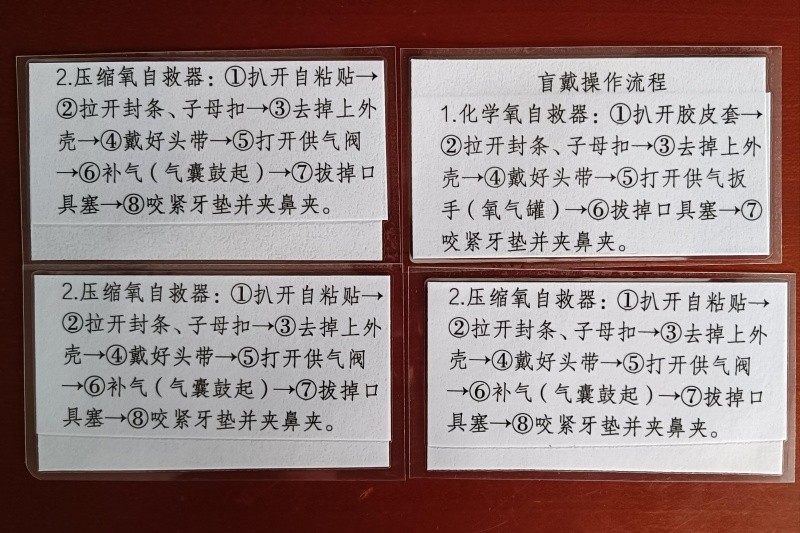 2.压缩氧自救器：①扒开自粘贴→
②拉开封条、子母扣→③去掉上外
壳→④戴好头带→⑤打开供气阀
→⑥补气（气囊鼓起）→⑦拔掉口
具塞→⑧咬紧牙垫并夹鼻夹。
盲戴操作流程
1.化学氧自救器：①扒开胶皮套→
②拉开封条、子母扣→③去掉上外
壳→④戴好头带→⑤打开供气扳
手（氧气罐）→⑥拔掉口具塞→⑦
咬紧牙垫并夹鼻夹。
2.压缩氧自救器：①扒开自粘贴→
②拉开封条、子母扣→③去掉上外
壳→④戴好头带→⑤打开供气阀
→⑥补气（气囊鼓起）→⑦拔掉口
具塞→⑧咬紧牙垫并夹鼻夹。
2.压缩氧自救器：①扒开自粘贴→
②拉开封条、子母扣→③去掉上外
壳→④戴好头带→⑤打开供气阀
→⑥补气（气囊鼓起）→⑦拔掉口
具塞→⑧咬紧牙垫并夹鼻夹。